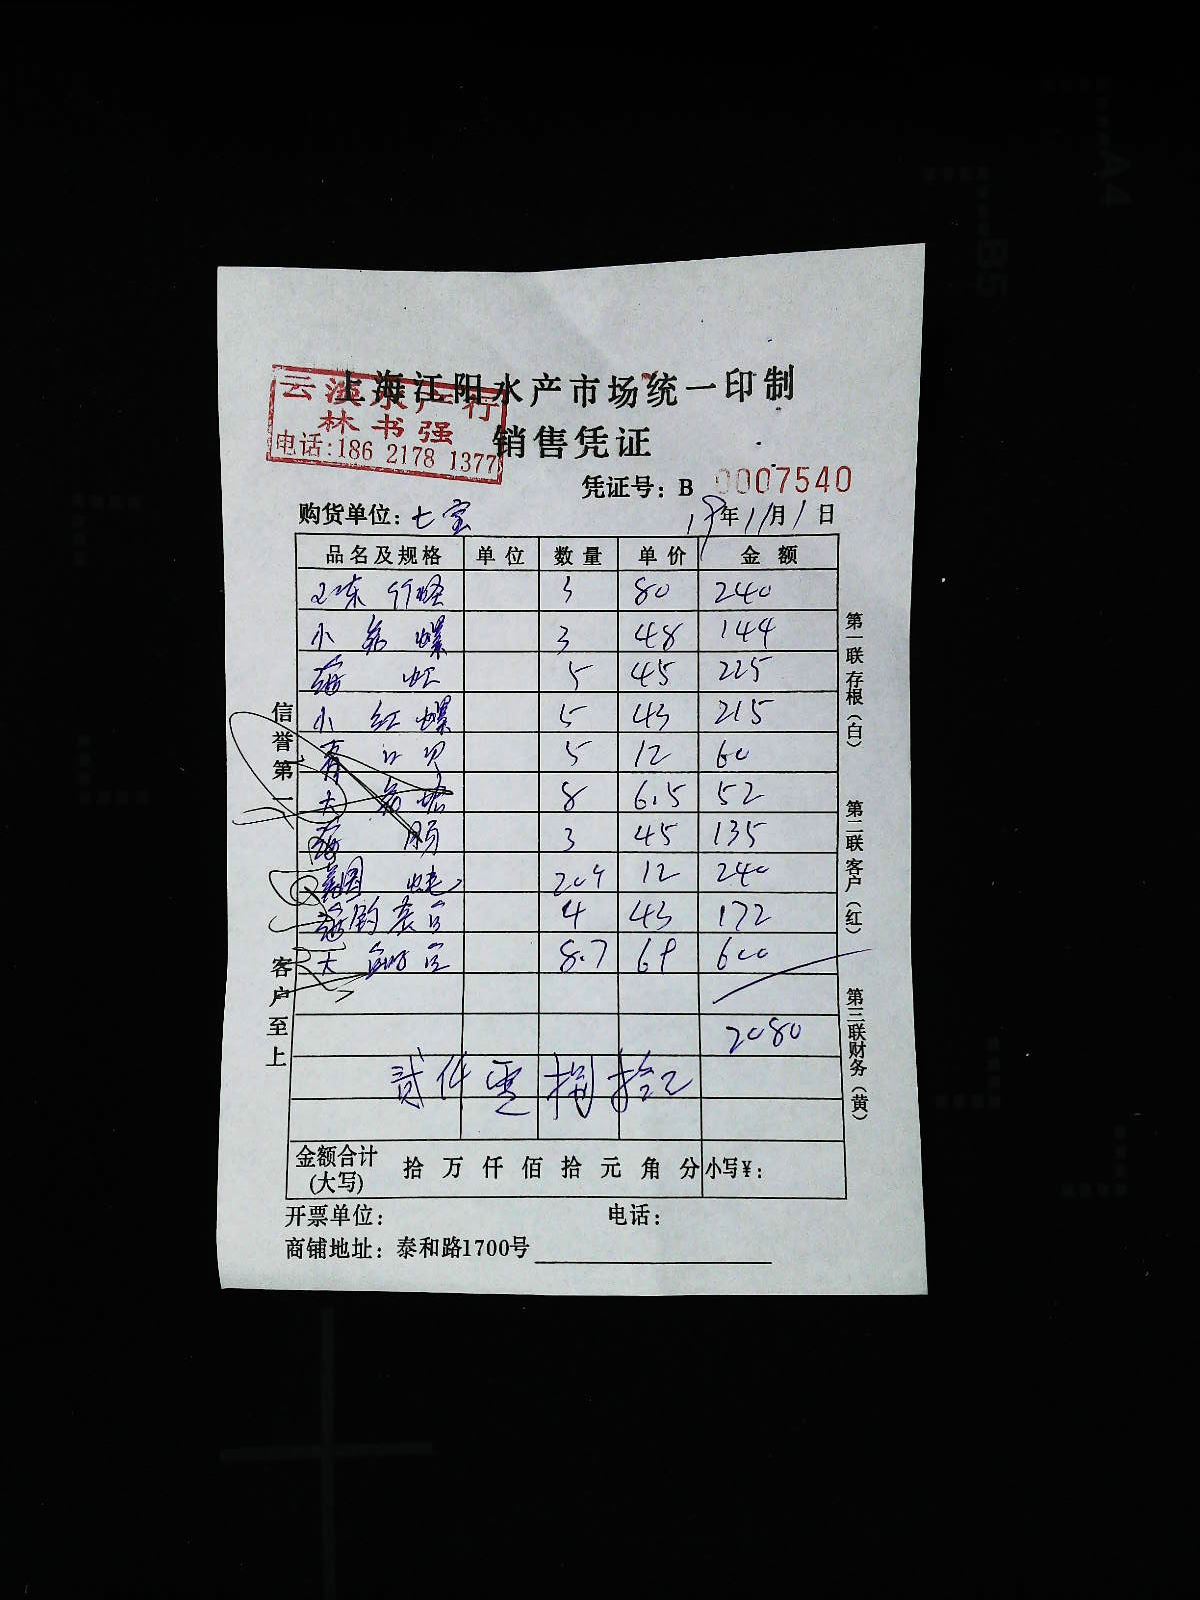 上海江阳水产市场统一印制
水产行
林书强
电话:186 2178 1377
销售凭证
凭证号: B 0007540
购货单位: 七宝 年11月1日
品名及规格 单位 数量 单价 金额
3 80 240
小 螺 3 48 144
海虹 5 45 225
小红螺 5 43 215
青口贝 5 12 60
大 8 6.5 52
海肠 3 45 135
12 240
4 43 172
大 8.7 69 600
2080
贰仟零捌拾元
金额合计
(大写)
拾 万 仟 佰 拾 元 角 分 小写¥:
开票单位: 电话:
商铺地址: 泰和路1700号
信誉第一 客户至上
第一联 存根(白) 第二联 客户(红) 第三联 财务(黄)